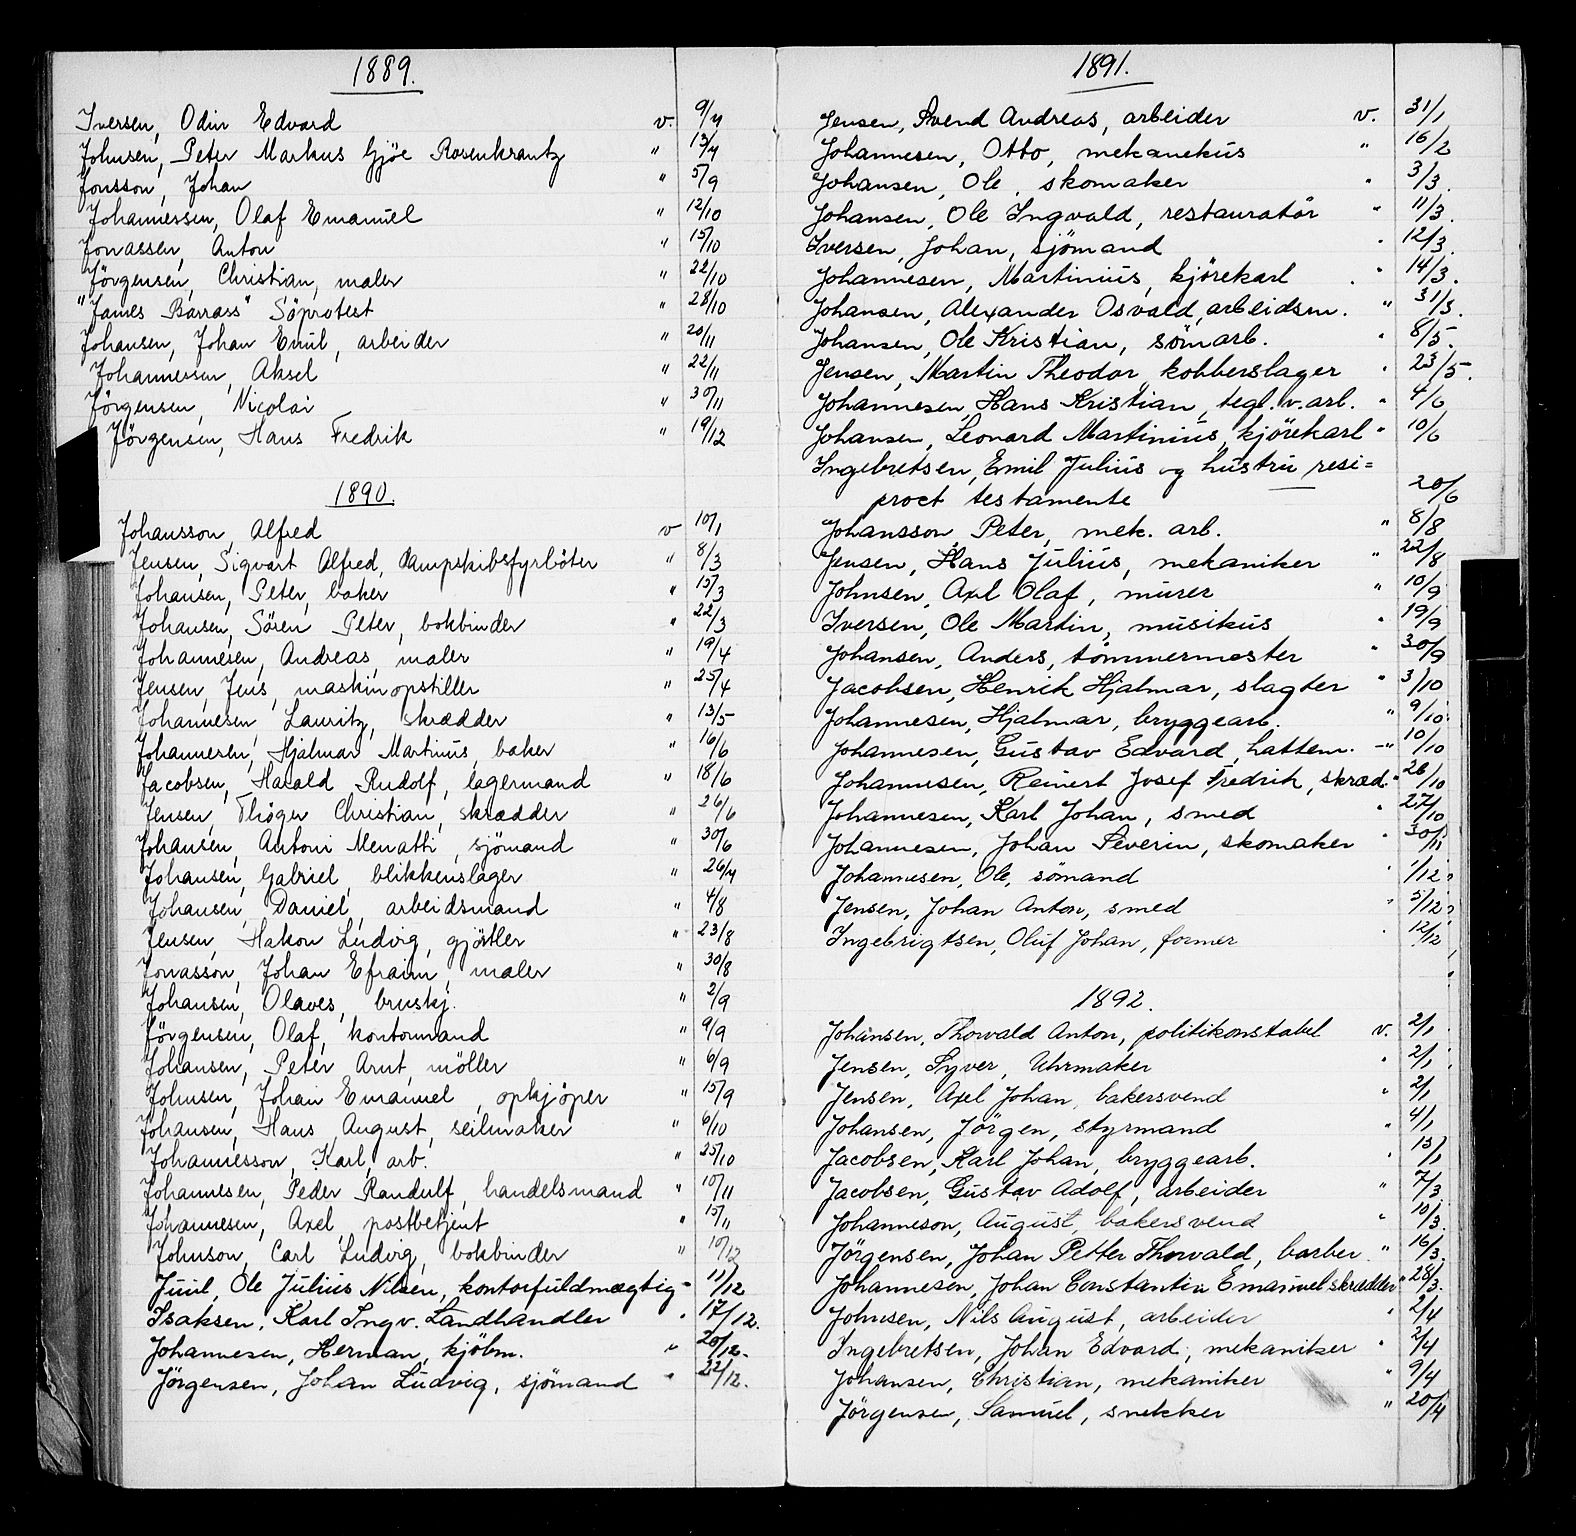 1889.
Iversen, Odin Edvard v. 9/7
Johnsen, Peter Markus Gjöe Rosenkrantz " 13/7
Jonsson, Johan " 5/9
Johannessen, Olaf Emanuel " 12/10
Jonassen, Anton " 15/10
Jörgensen, Christian, maler " 22/10
"James Barrass" Söprotest " 28/10
Johansen, Johan Emil, arbeider " 20/11
Johannessen, Aksel " 22/11
Jörgensen, Nicolai " 30/11
Jörgensen, Hans Fredrik " 19/12
1890.
Johansson, Alfred v 10/1
Jensen, Sigvart Alfred, Dampskibsfyrböter " 8/3
Johansen, Peter, baker " 15/3
Johansen, Sören Peter, bokbinder " 22/3
Johannesen, Andreas, maler " 19/4
Jensen, Jens, maskinopstiller " 25/4
Johannesen, Lauritz, skrædder " 13/5
Johannesen, Hjalmar Martinius, baker " 16/6
Jacobsen, Harald Rudolf, lagermand " 18/6
Jensen, Thöger Christian, skrædder " 26/6
Johansen, Antoni Menatti, sjömand " 30/6
Johansen, Gabriel, blikkenslager " 26/7
Johansen, Daniel, arbeidsmand " 4/8
Jensen, Hakon Ludvig, gjörtler " 23/8
Jonasson, Johan Efraim, maler " 30/8
Johansen, Olaves, bruskj. " 2/9
Jörgensen, Olaf, kontormand " 9/9
Johansen, Peter Arnt, möller " 6/9
Johnsen, Johan Emanuel, opkjöper " 15/9
Johansen, Hans August, seilmaker " 6/10
Johannesson, Karl, arb. " 25/10
Johannesen, Peder Randulf, handelsmand " 10/11
Johannesen, Axel, postbetjent " 15/11
Johnson, Carl Ludvig, bokbinder " 10/12
Juul, Ole Julius Nilsen, kontorfuldmægtig " 11/12
Isaksen, Karl Ingv. Landhandler " 17/12.
Johannesen, Herman, kjöbm. " 20/12.
Jörgensen, Johan Ludvig, sjömand " 22/12.
1891.
Jensen, Svend Andreas, arbeider v. 31/1
Johannesen, Otto, mekanekus " 16/2
Johansen, Ole, skomaker " 3/3.
Johansen, Ole Ingvald, restauratör " 11/3.
Iversen, Johan, sjömand " 12/3.
Johannesen, Martinius, kjörekarl " 14/3.
Johansen, Alexander Osvald, arbeidsm. " 31/3.
Johansen, Ole Kristian, sömarb. " 8/5.
Jensen, Martin Theodor, kobberslager " 23/5.
Johannesen, Hans Kristian, tegl.v.arb. " 4/6
Johansen, Leonard Martinius, kjörekarl " 10/6
Ingebretsen, Emil Julius og hustru resi=
proct testamente 20/6
Johansson, Peter, mek. arb. " 8/8
Jensen, Hans Julius, mekaniker " 22/8
Johnsen, Axel Olaf, murer " 10/9
Iversen, Ole Martin, musikus " 19/9
Johansen, Anders, tömmermester " 30/9
Jacobsen, Henrik Hjalmar, slagter " 3/10
Johannesen, Hjalmar, bryggearb. " 9/10.
Johannesen, Gustav Edvard, hattem. " 10/10
Johannesen, Reinert Josef Fredrik, skræd. " 26/10
Johannesen, Karl Johan, smed " 27/10
Johannesen, Johan Severin, skomaker " 30/11
Johannesen, Ole, sömand " 1/12
Jensen, Johan Anton, smed " 5/12
Ingebrigtsen, Oluf Johan, former " 12/12
1892.
Johansen, Thorvald Anton, politikonstabel v. 2/1
Jensen, Syver, Uhrmaker " 2/1
Jensen, Axel Johan, bakersvend " 2/1
Johansen, Jörgen, styrmand " 4/1
Jacobsen, Karl Johan, bryggearb. " 15/1
Jacobsen, Gustav Adolf, arbeider " 7/3
Johanneson, August, bakersvend " 10/3.
Jörgensen, Johan Petter Thorvald, barber " 16/3.
Johannesen, Johan Constantin Emanuel skrædder " 28/3.
Johnsen, Nils August, arbeider " 2/4
Ingebretsen, Johan Edvard, mekaniker " 2/4
Johansen, Christian, mekaniker " 9/4
Jörgensen, Samuel, snekker " 20/4